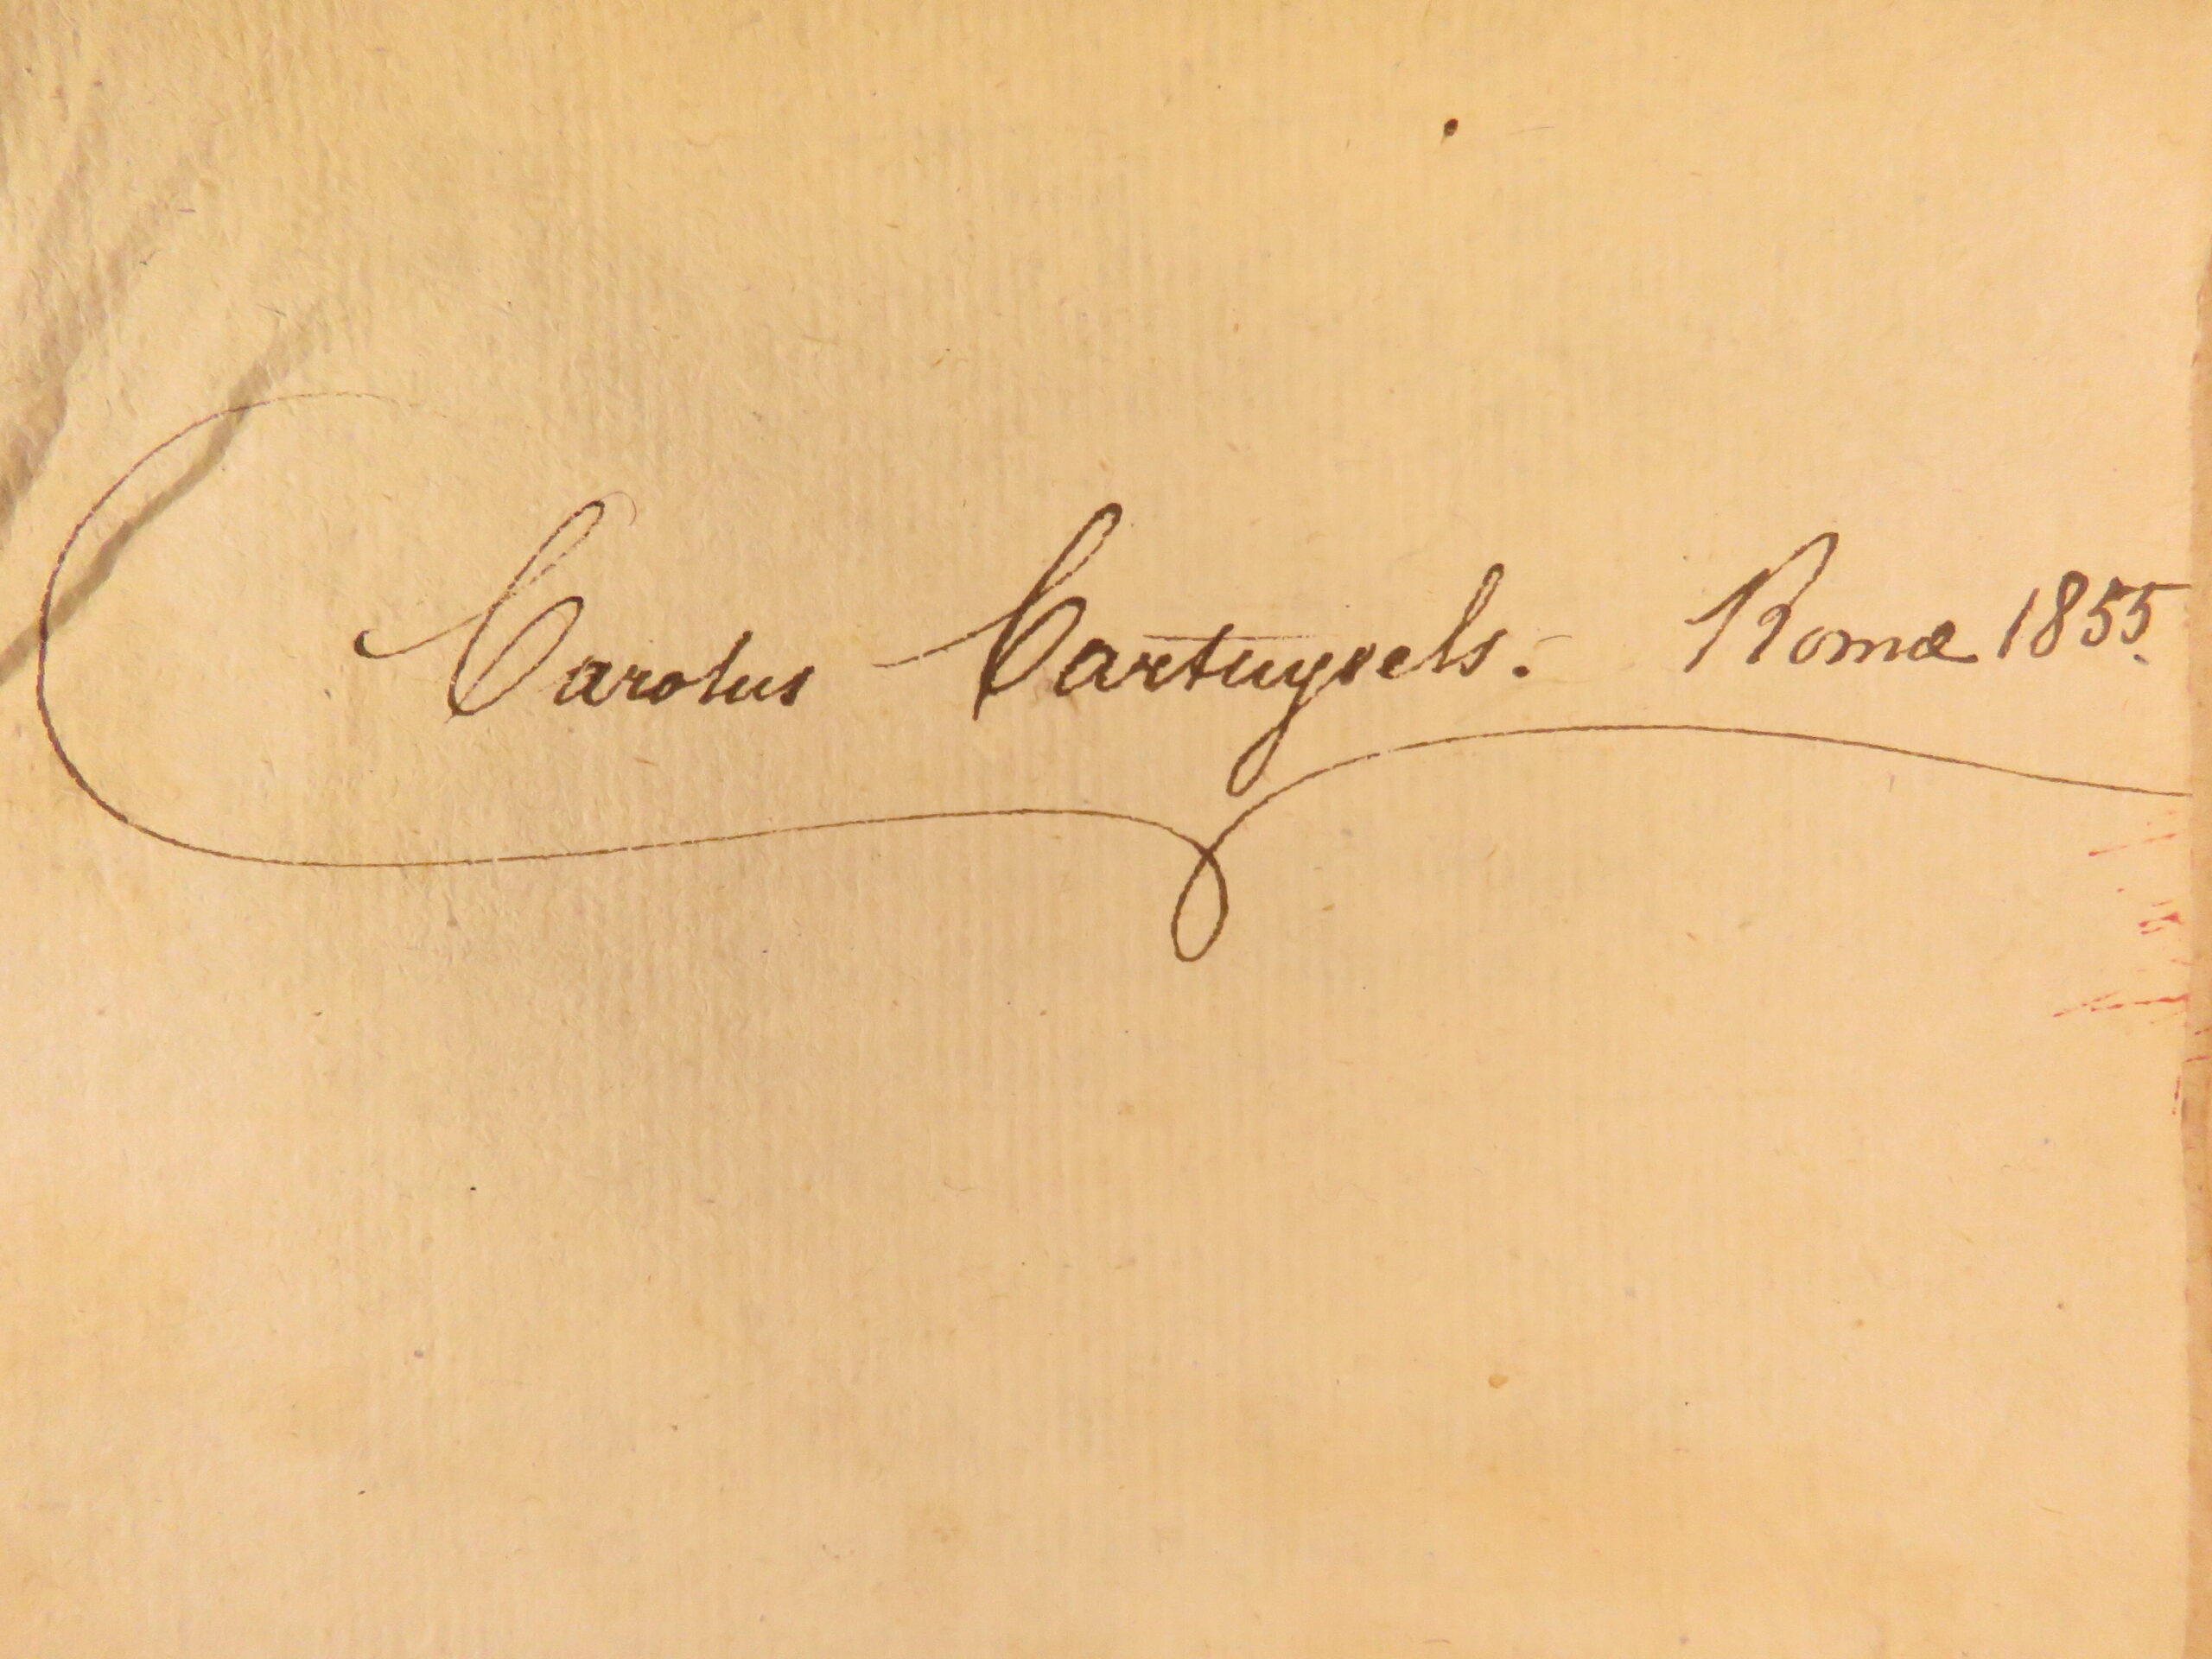 Carolus Cartuysels. Romæ 1855.